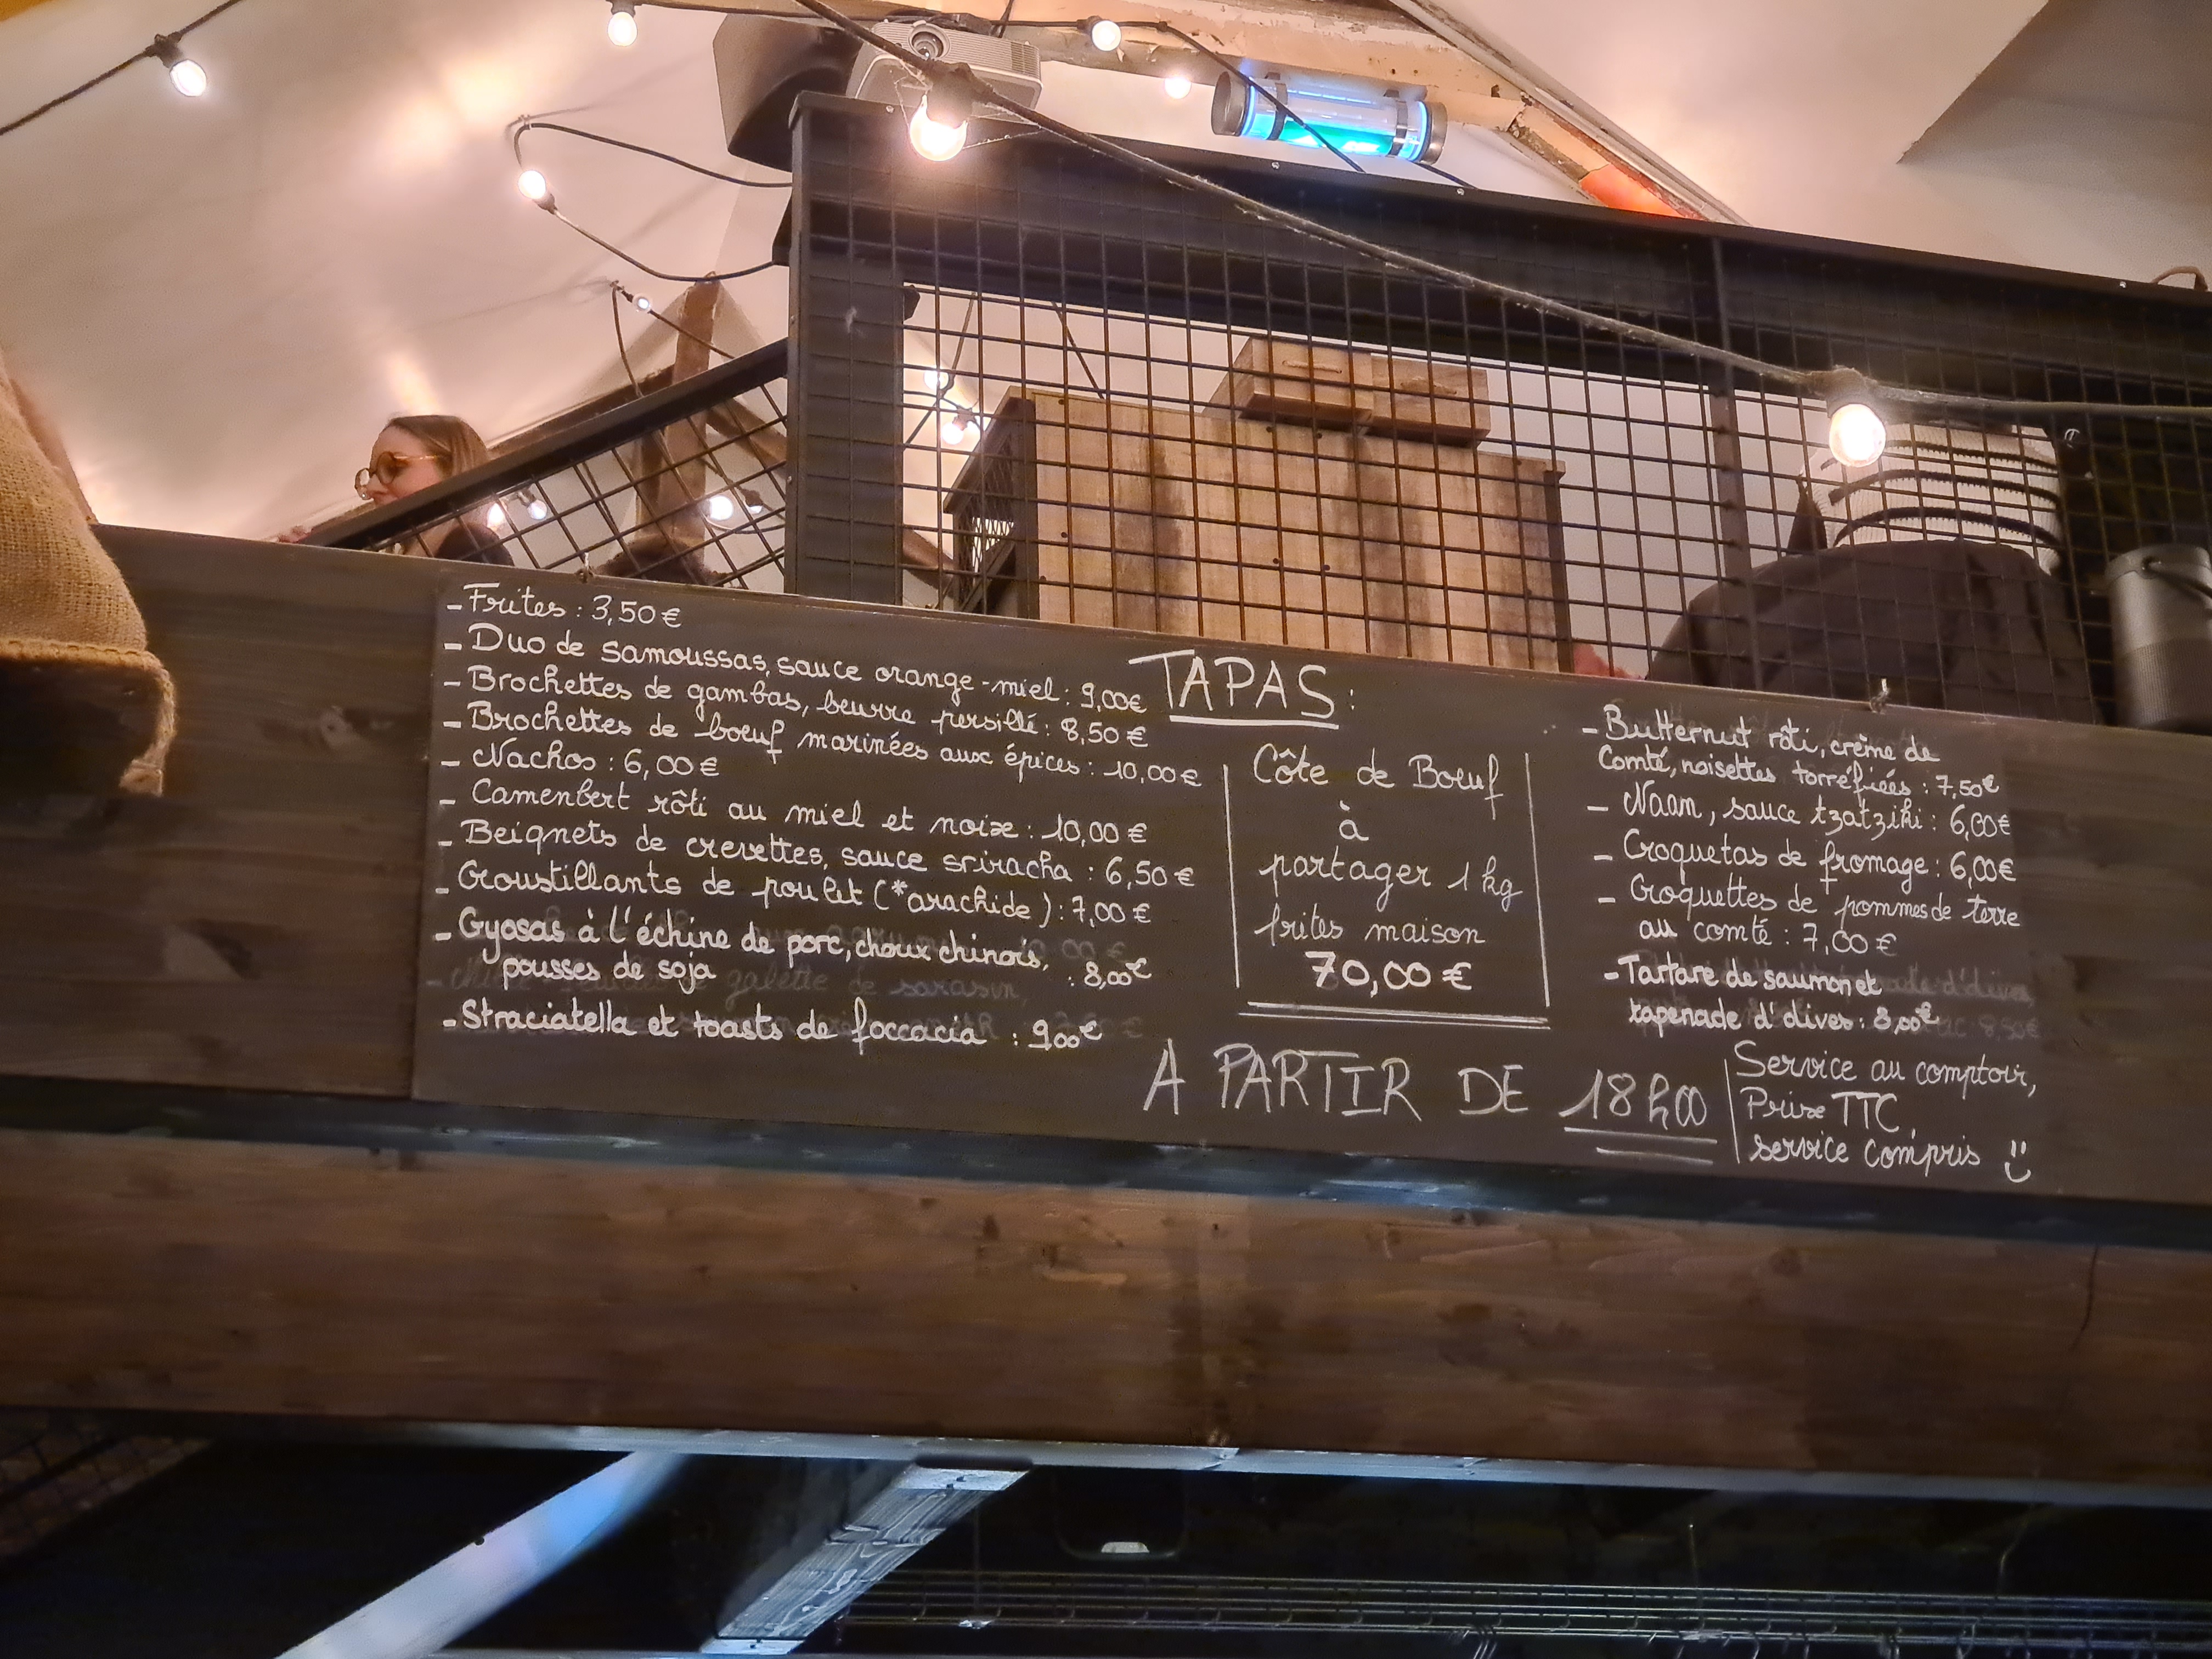 TAPAS :
- Frites : 3,50 €
- Duo de samoussas, sauce orange-miel : 9,00€
- Brochettes de gambas, beurre persillé : 8,50 €
- Brochettes de boeuf marinées aux épices : 10,00 €
- Nachos : 6,00 €
- Camembert rôti au miel et noix : 10,00 €
- Beignets de crevettes, sauce sriracha : 6,50 €
- Croustillants de poulet (*arachide) : 7,00 €
- Gyosas à l'échine de porc, choux chinois,
pousses de soja : 8,00€
- Straciatella et toasts de foccacia : 9,00€
Côte de Boeuf
à
partager 1 kg
frites maison
70,00 €
- Butternut rôti, crème de
Comté, noisettes torréfiées : 7,50€
- Naan, sauce tzatziki : 6,00€
- Croquetas de fromage : 6,00€
- Croquettes de pommes de terre
au comté : 7,00 €
- Tartare de saumon et
tapenade d'olives : 8,00€
A PARTIR DE 18h00
Service au comptoir,
Prix TTC,
service compris